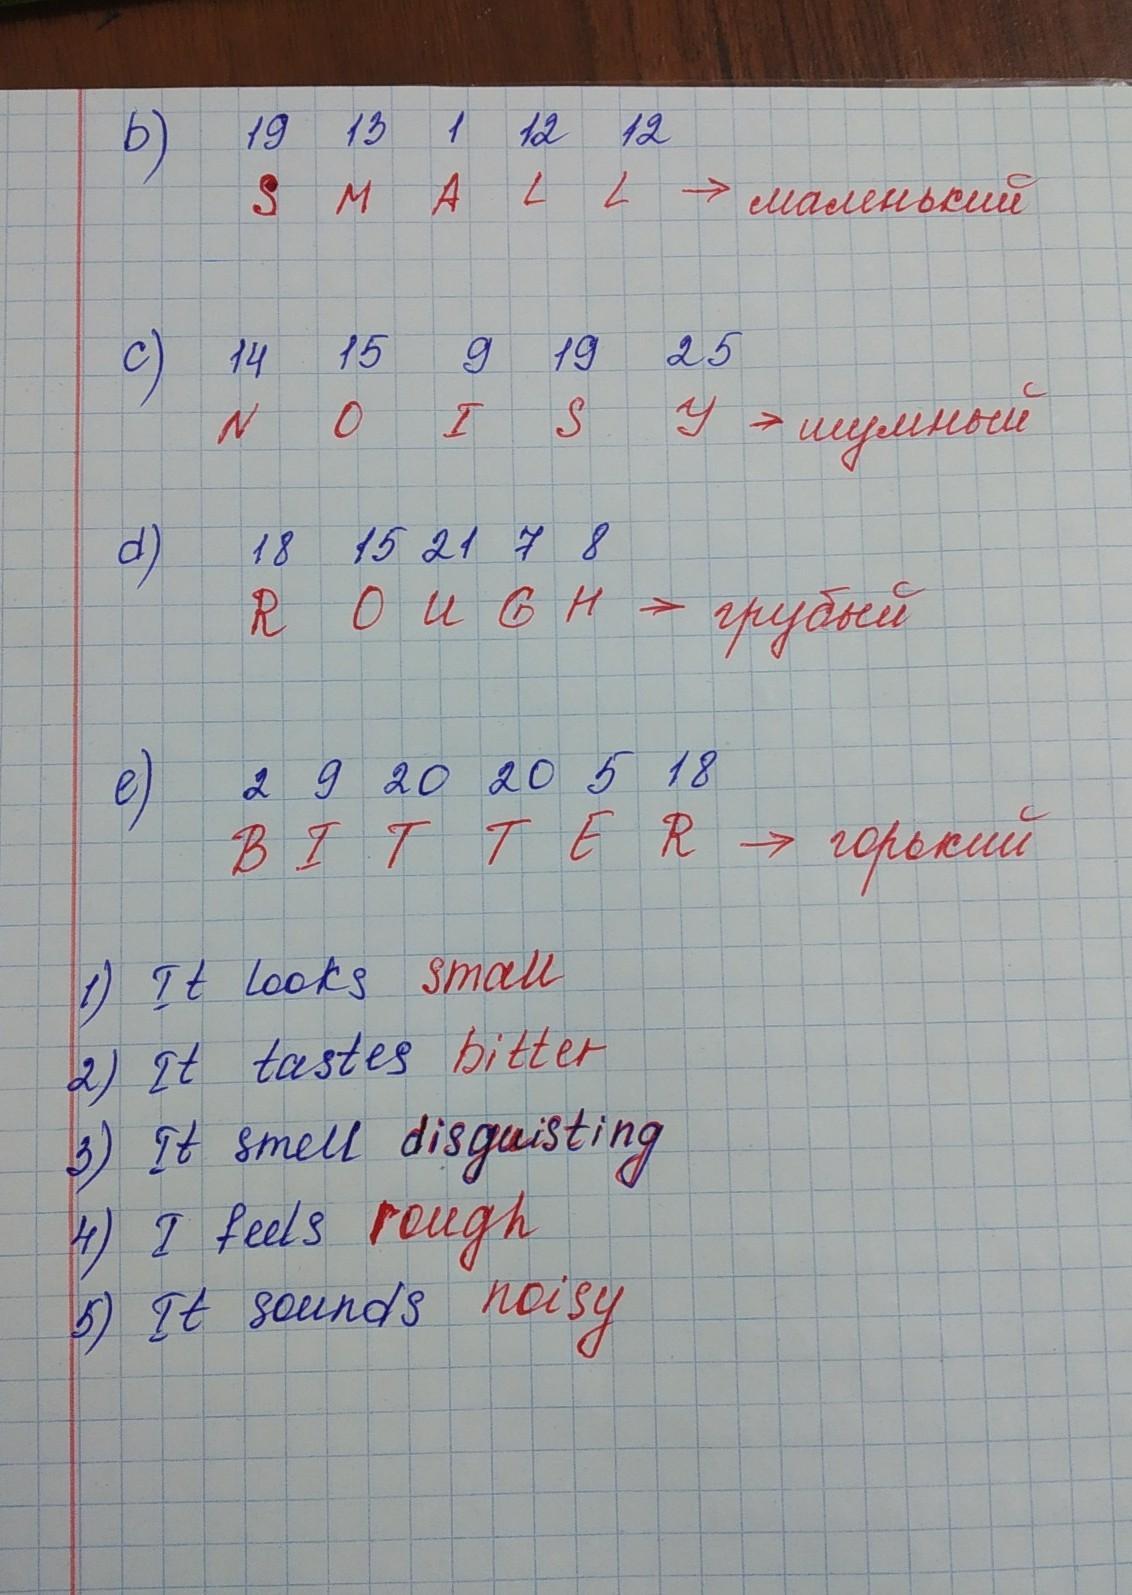 b) 19 13 1 12 12
S M A L L → маленький
c) 14 15 9 19 25
N O I S Y → шумный
d) 18 15 21 7 8
R O U G H → грубый
e) 2 9 20 20 5 18
B I T T E R → горький
1) It looks small
2) It tastes bitter
3) It smell disguisting
4) I feels rough
5) It sounds noisy